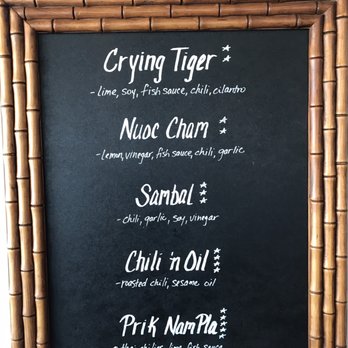 Crying Tiger **
- lime, soy, fish sauce, chili, cilantro
Nuoc Cham **
- lemon, vinegar, fish sauce, chili, garlic
Sambal ***
- chili, garlic, soy, vinegar
Chili 'n Oil ****
- roasted chili, sesame oil
Prik Nam Pla
- thai chilies, lime, fish sauce